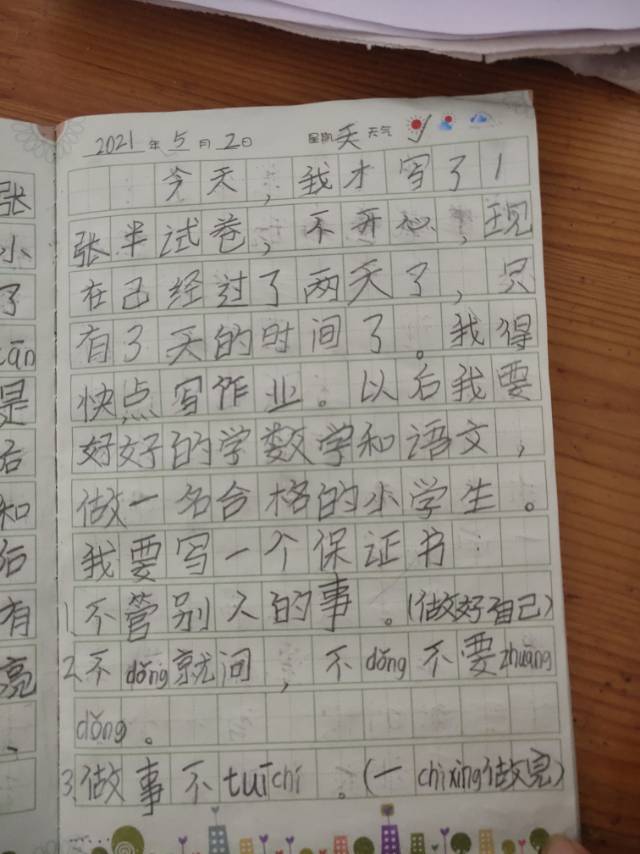 2021年5月2日 星期天 天气
今天,我才写了1
张半试卷,不开心,现
在已经过了两天了,只
有3天的时间了。我得
快点写作业。以后我要
好好的学数学和语文,
做一名合格的小学生。
我要写一个保证书:
1.不管别人的事。(做好自己)
2.不dǒng就问,不dǒng不要zhuāng
dǒng。
3.做事不tuīchí。(一chìxìng做完)
张
小
了
cān
是
后
和
后
有
亮
、